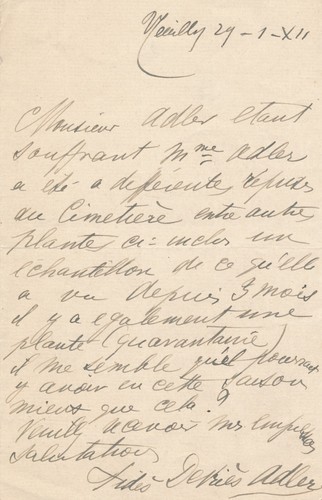 Neuilly 29-1-XII
Monsieur Adler étant
souffrant Mme Adler
a été a differentes reprises
au Cimetière entre autre
plantes ci-inclus un
echantillon de ce qu'elle
a vu depuis 3 mois
il y a egalement une
plante (quarantaine)
il me semble qu'il pourrait
y avoir en cette saison
mieux que cela ?
Veuillez recevoir mes
Salutations
Fidès Devriès Adler